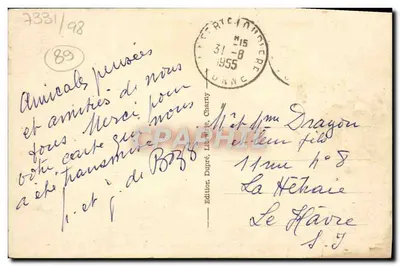 7331/98
89
Amicales pensées
et amitiés de nous
tous. Merci pour
votre carte qui nous
a été transmise
p. et g. de
LA FERTE LOUPIERE
15
31-8
1955
YONNE
Edition, Dupré, Charny
CPARTHAPHILA
M et Mme Dragon
et leur fils
11 rue n° 8
La Hêtraie
Le Hâvre
S. I